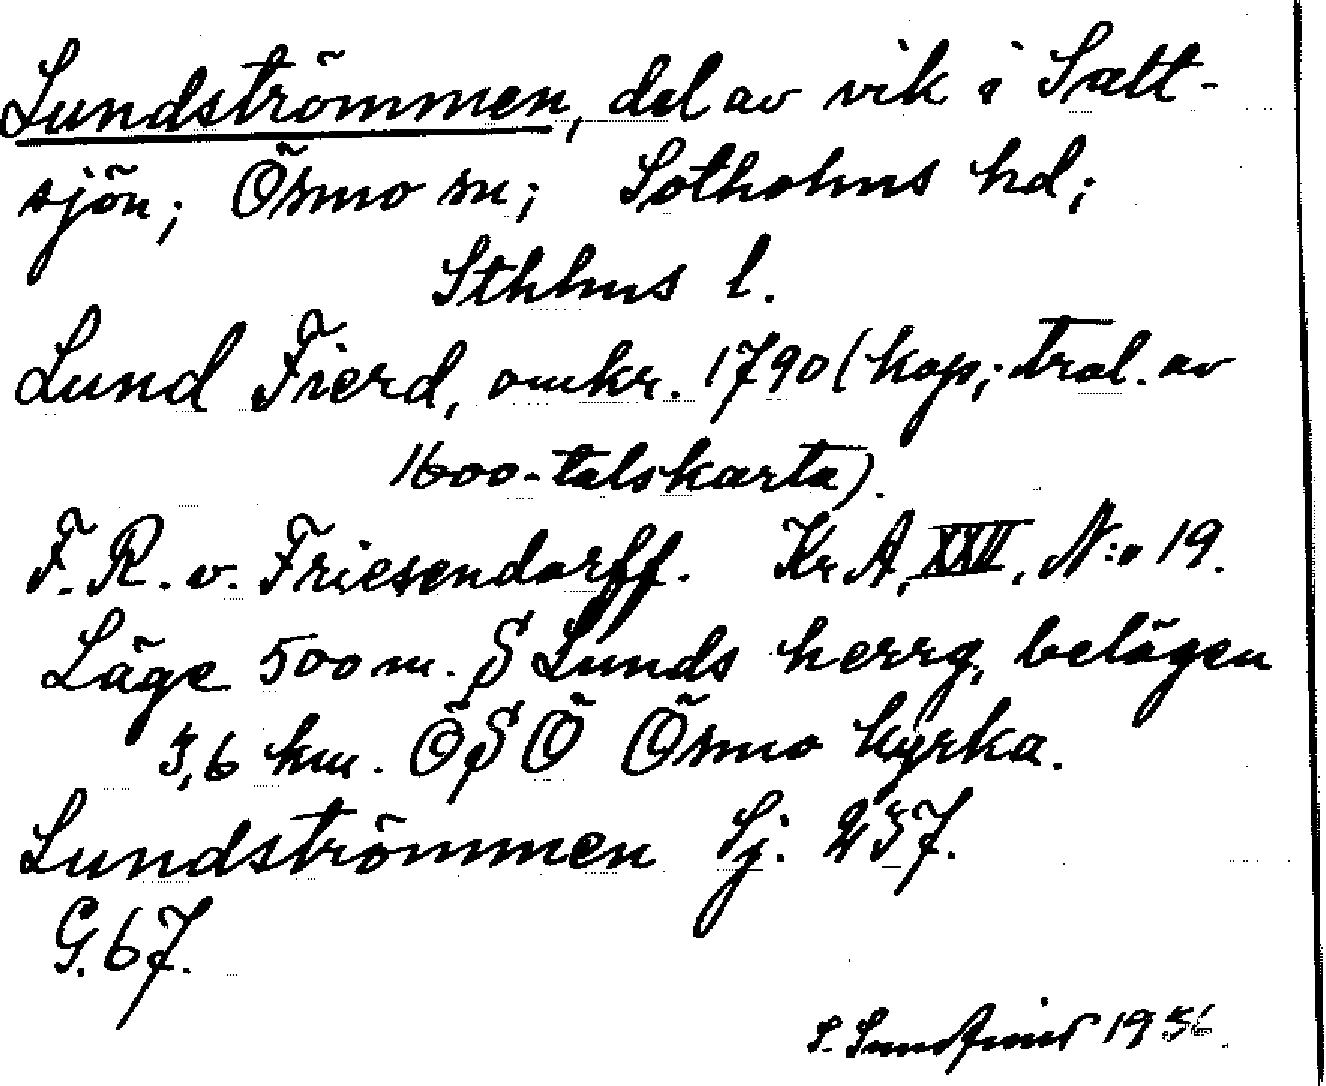 Lundströmmen, del av vik i Salt-
sjön; Ösmo sn; Sotholms hd;
Sthlms l.
Lund Fierd, omkr. 1790 (kop; tral. av
1600-talskarta).
F. R. v. Friesendorff. Kr A, XXII, N:o 19.
Läge 500 m. S Lunds herrg, belägen
3,6 km. ÖSÖ Ösmo kyrka.
Lundströmmen Sj. 237.
G. 67.
S. 1936.